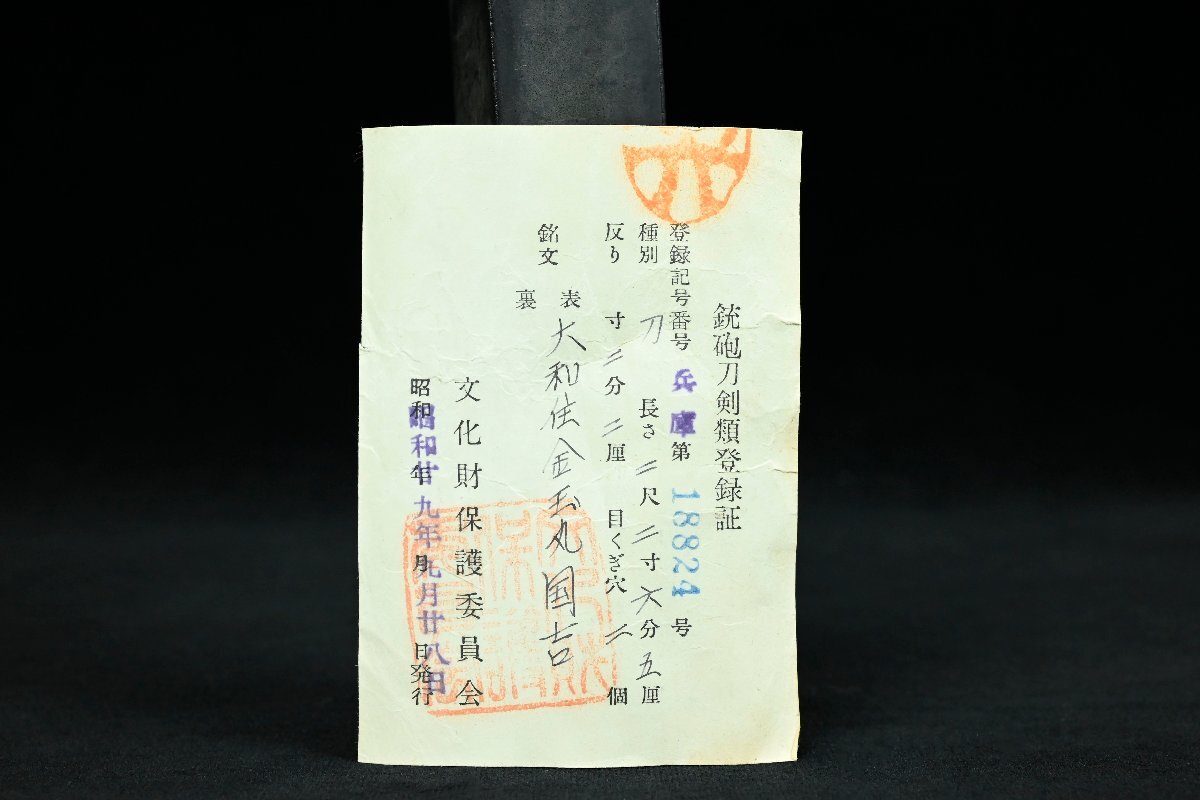 銃砲刀剣類登録証
登録記号番号 兵庫 第 18824 号
種別 刀 長さ 二尺二寸六分五厘
反り 寸二分二厘 目くぎ穴 二個
銘文 表 大和住金玉丸国吉
裏
文化財保護委員会
昭和 年 月 日発行
昭和廿九年九月廿八日